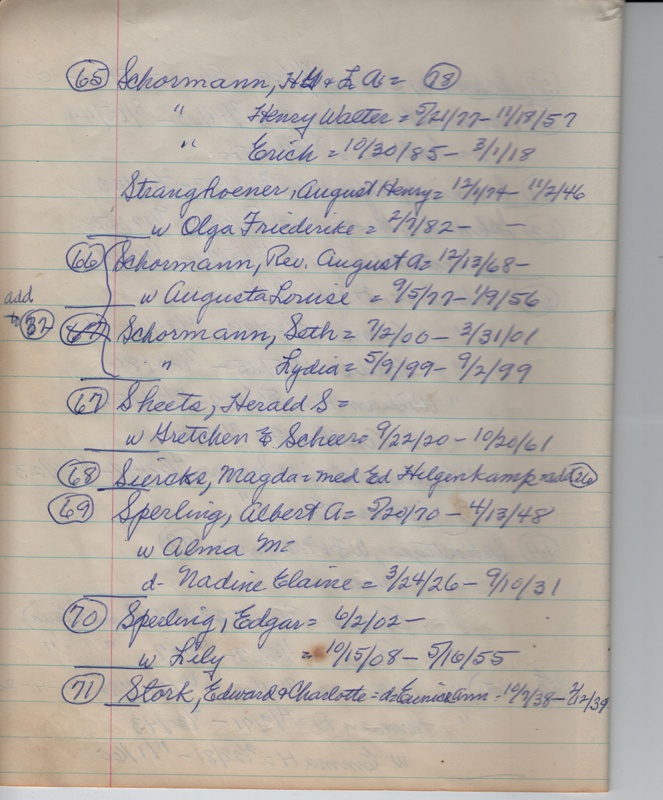 65 Schormann, H W & L A = 78
" Henry Walter = 5/21/77 - 11/18/57
" Erich = 10/30/85 - 3/1/18
Stranghoener, August Henry = 12/1/74 - 11/2/46
w Olga Friederike = 2/7/82 - -
66 Schormann, Rev. August A = 12/13/68 -
add w Augusta Louise = 9/5/77 - 1/9/56
to 37 67 Schormann, Seth = 7/2/00 - 3/31/01
" Lydia = 5/9/99 - 9/2/99
67 Sheets, Herald S =
w Gretchen E Scheer = 9/22/20 - 10/20/61
68 Siercks, Magda = med Ed Helgenkamp add 26
69 Sperling, Albert A = 5/20/70 - 4/13/48
w Alma M =
d - Nadine Elaine = 3/24/26 - 9/10/31
70 Sperling, Edgar = 6/2/02 -
w Lily = 10/15/08 - 5/16/55
71 Stork, Edward & Charlotte = d = Eunice Ann - 10/7/38 - 2/12/39